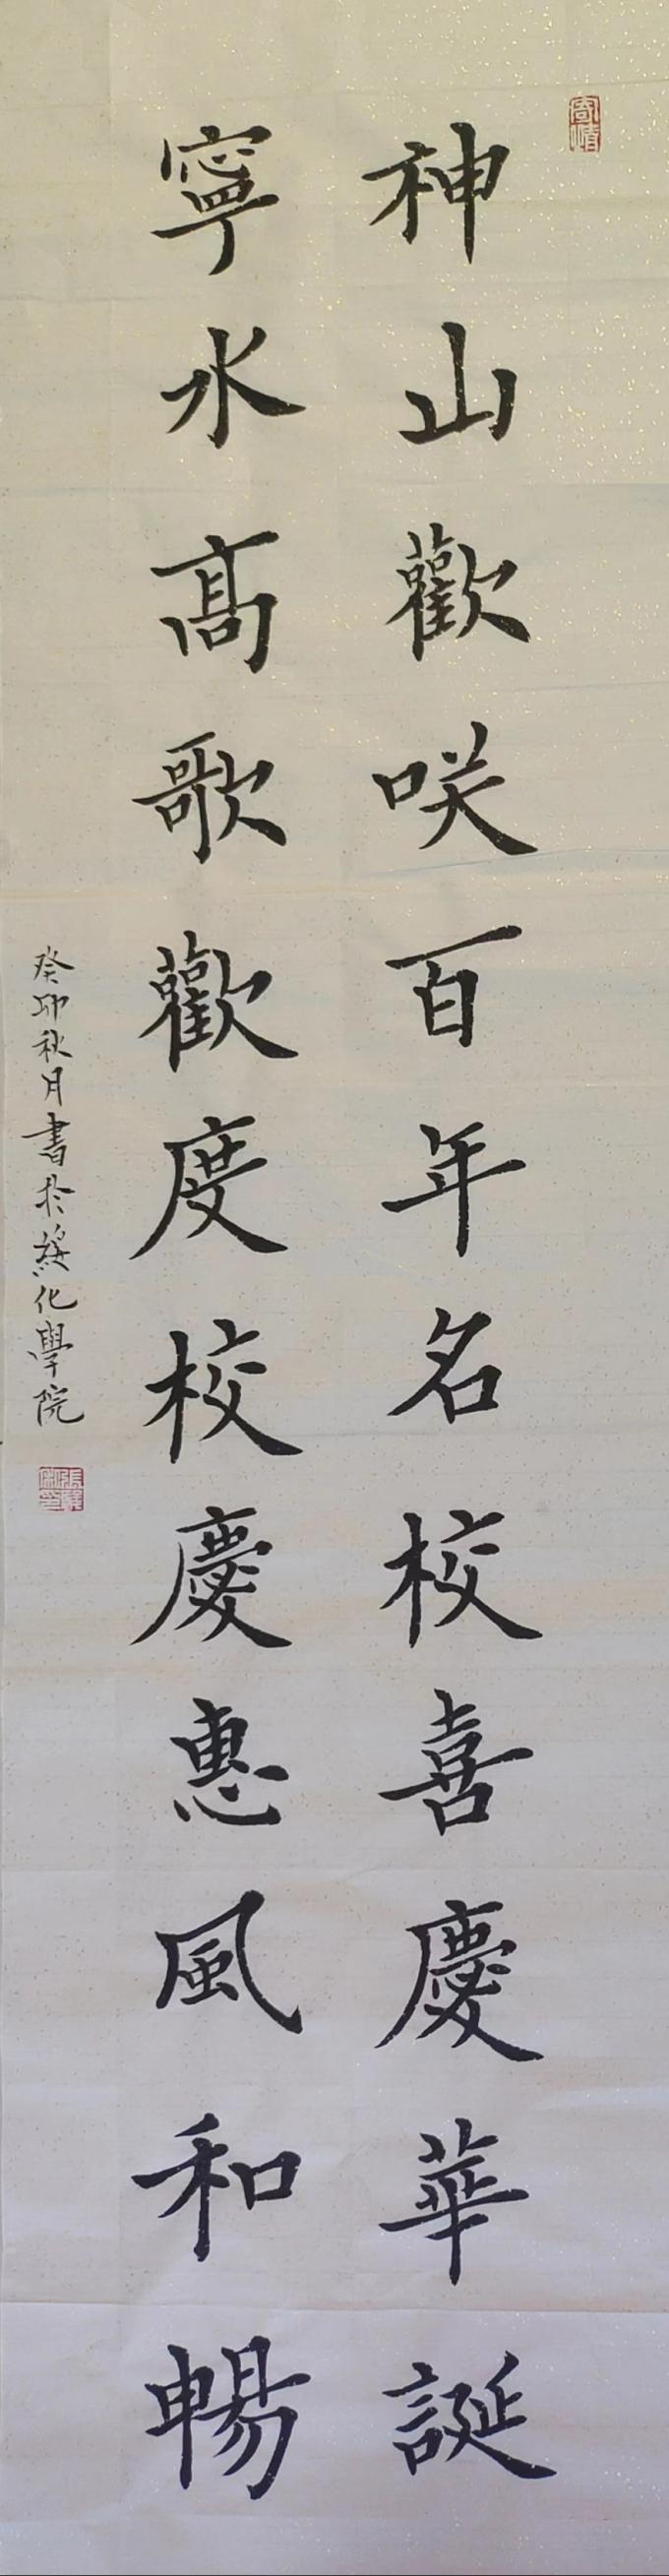 寄情
神山歡咲百年名校喜慶華誕
寧水高歌歡度校慶惠風和暢
癸卯秋月書於綏化學院